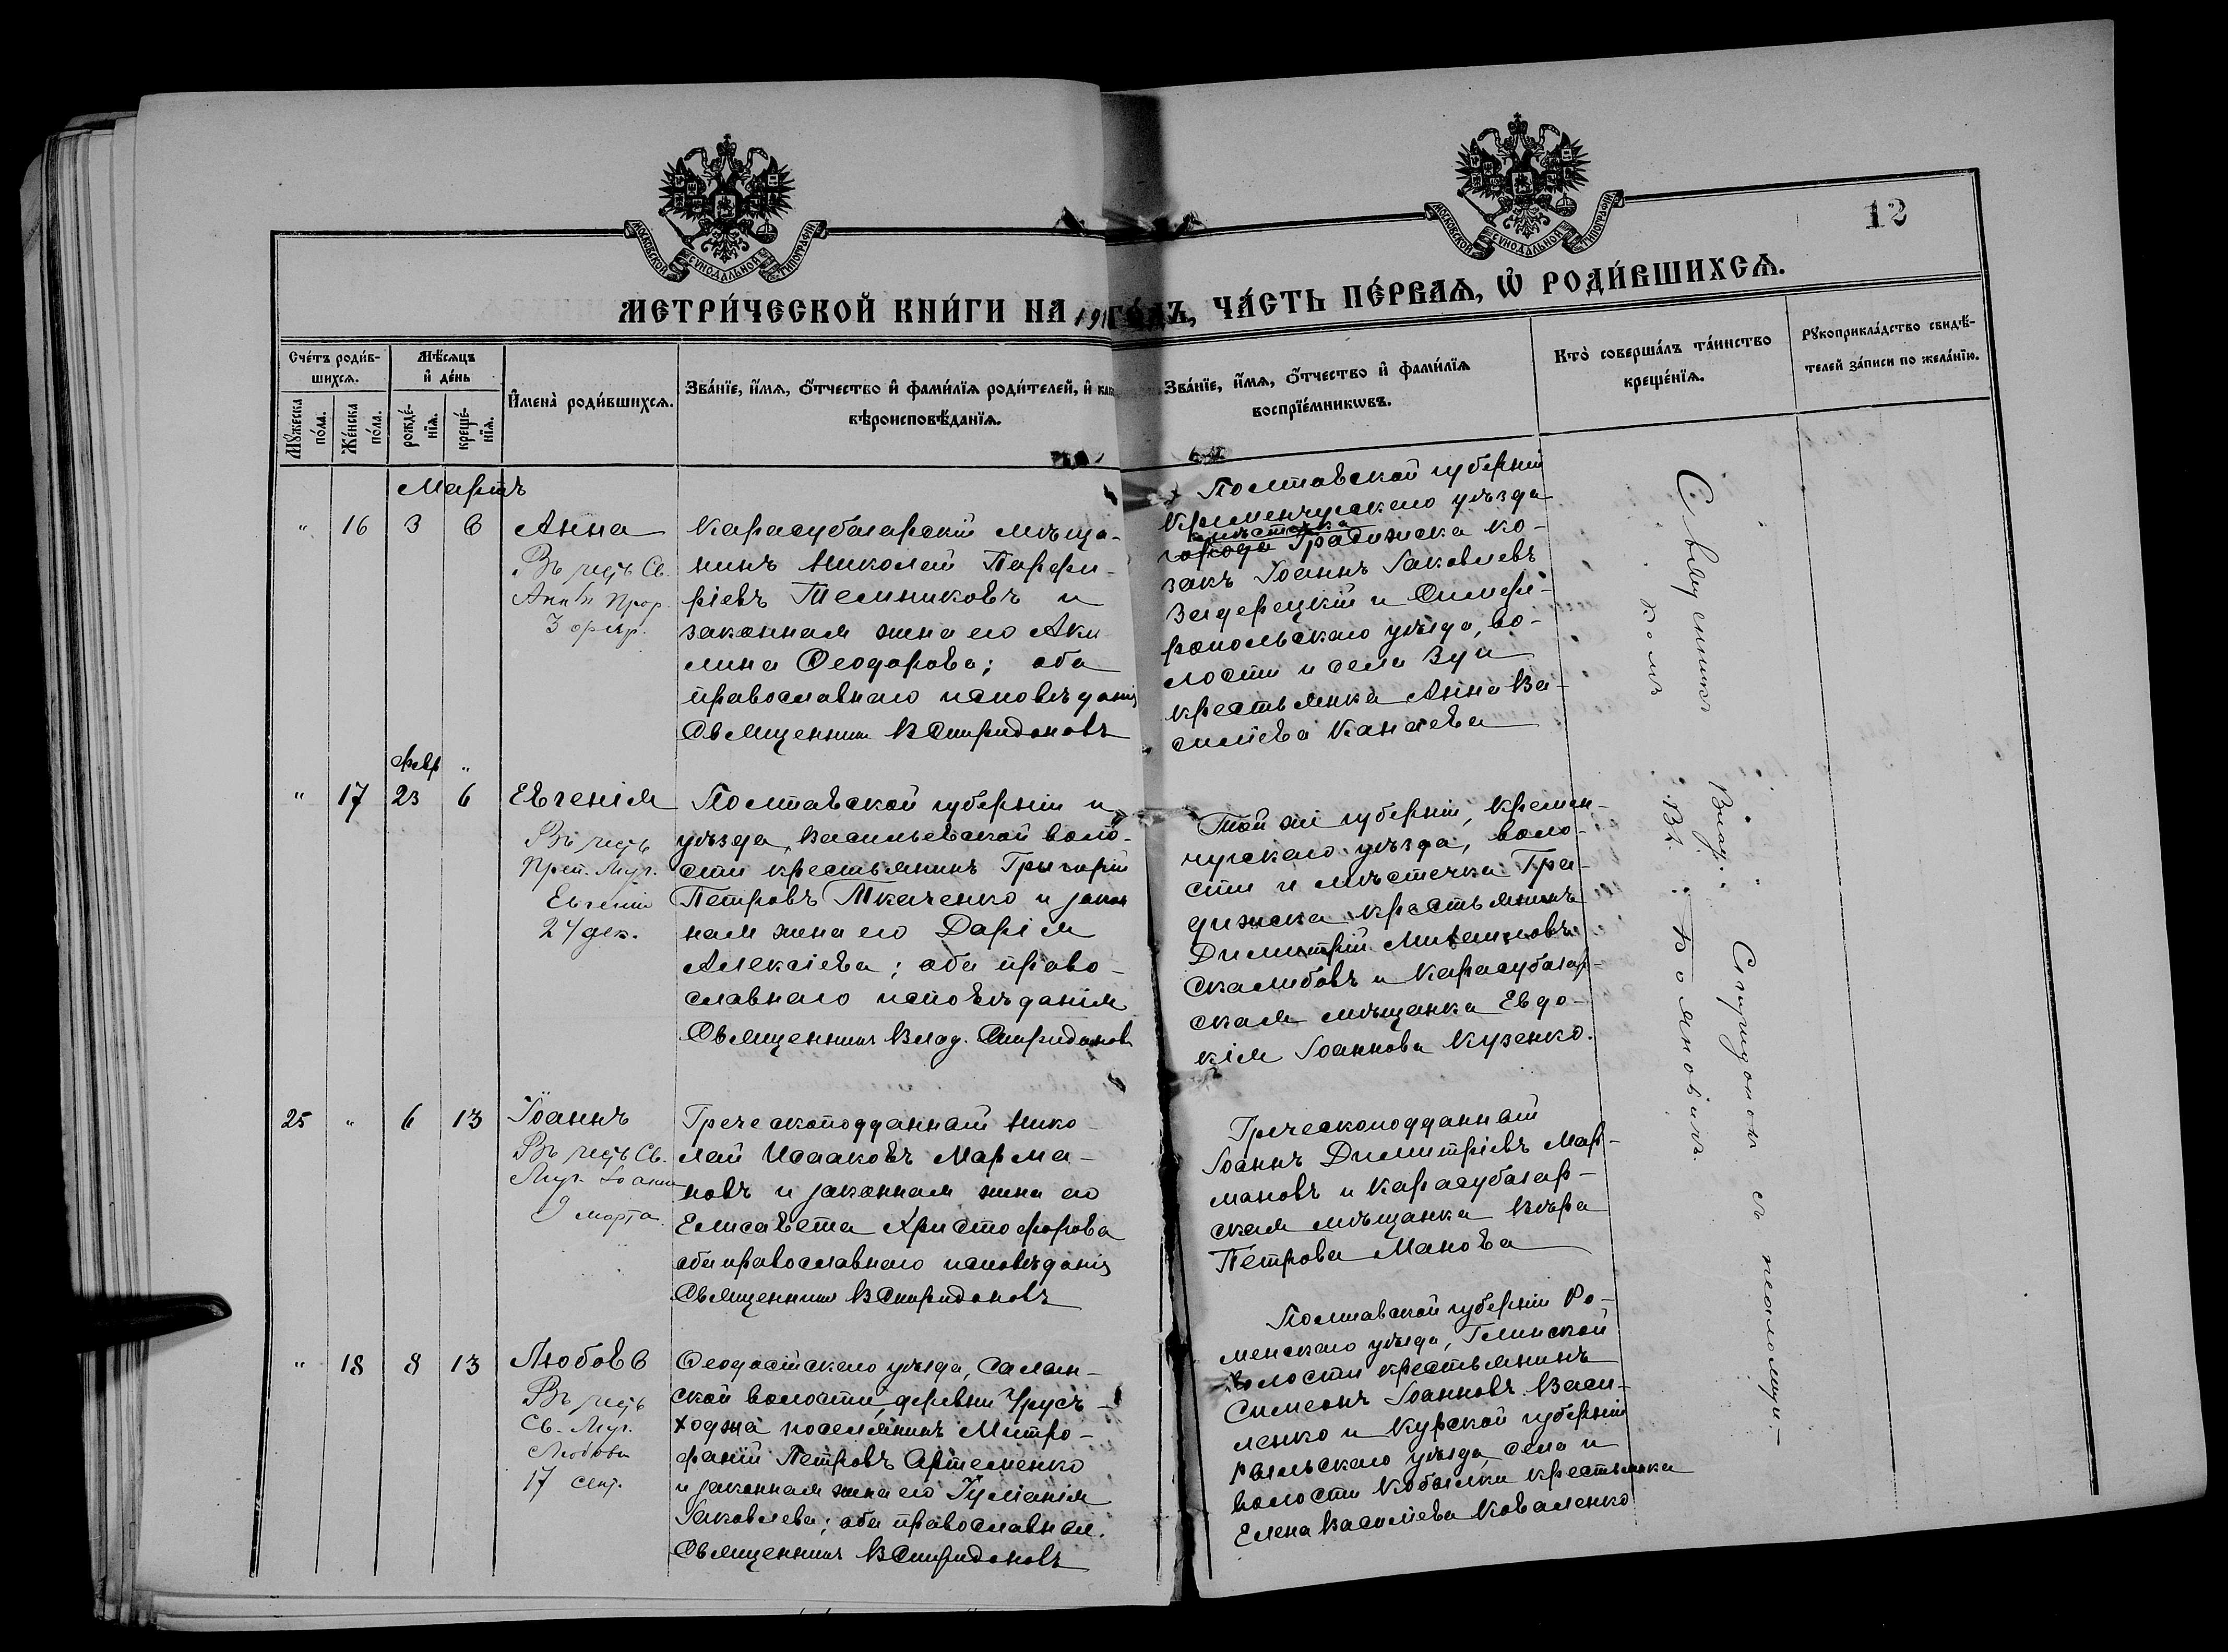 МОСКОВСКОЙ СѴНОДАЛЬНОЙ ТИПОГРАФІИ
МОСКОВСКОЙ СѴНОДАЛЬНОЙ ТИПОГРАФІИ
12
МЕТРИ́ЧЕСКОЙ КНИ́ГИ НА 191 ГО́ДЪ, ЧА́СТЬ ПЕ́РВАѦ, Ѡ РОДИ́ВШИХСѦ.
Сче́тъ роди́в-
шихсѧ.
Мѣ́сѧцъ
и҆ де́нь
Мꙋ́жеска по́ла.
Же́нска по́ла.
рожде́-
нїѧ.
креще́-
нїѧ.
И҆мена̀ роди́вшихсѧ.
Зва́нїе, и҆́мѧ, ѻ҆́тчество и҆ фами́лїѧ роди́телей, и҆
вѣроисповѣ́данїѧ.
Зва́нїе, и҆́мѧ, ѻ҆́тчество и҆ фами́лїѧ
воспрїе́мникѡвъ.
Кто̀ соверша́лъ та́инство
креще́нїѧ.
Рꙋкоприкла́дство свидѣ́-
телей за́писи по жела́нїю.
Мартъ
" 16 3 6 Анна
Въ честь Св.
Анны Прор.
3 февр.
Карасубазарскій мѣща-
нинъ Николай Парфи-
ріевъ Темниковъ и
законная жена его Аки
лина Ѳеодорова; оба
православнаго исповѣданія
Священник В Спиридоновъ
Полтавской губерніи
Кременчугскаго уѣзда
мѣстечка
города Градижска ко-
закъ Іоаннъ Іаковлевъ
и Симфе-
ропольскаго уѣзда, во-
лости и села Зуи
крестьянка Анна Ва-
силіева Канаева
Февр "
" 17 23 6 Евгенія
Въ честь
Преп. Муч.
Евгеніи
24 дек.
Полтавской губерніи и
уѣзда, Васильевской воло-
сти крестьянинъ Григорій
Петровъ Ткаченко и закон
ная жена его Дарія
Алексіева; оба право-
славнаго исповѣданія
Священникъ Влад. Спиридоновъ
Той же губерніи, Кремен-
чугскаго уѣзда, воло-
сти и мѣстечка Гра-
дижска крестьянинъ
Димитрій Михаиловъ
Скалибовъ и Карасубазар-
ская мѣщанка Евдо-
кія Іоаннова Кузенко.
25 " 6 13 Іоаннъ
Въ честь Св.
Муч. Іоанн
9 марта
Греческоподданный Нико-
лай Исааковъ Марма-
новъ и законная жена его
Елисавета Христофорова
оба православнаго исповѣданія
Священник В Спиридоновъ
Греческоподданный
Іоаннъ Димитріевъ Мар-
мановъ и Карасубазар-
ская мѣщанка Вѣра
Петрова Манова
" 18 8 13 Любовь
Въ честь
Св. Муч.
Любови
17 сент.
Ѳеодосійскаго уѣзда, Салын-
ской волости, деревни Урусъ-
Ходжа поселянинъ Митро-
фаній Петровъ Артеменко
и законная жена его Іуліанія
Іаковлева; оба православныя.
Священникъ В Спиридоновъ
Полтавской губерніи Ро-
менскаго уѣзда, Глинской
волости крестьянинъ
Симеонъ Іоанновъ Васи-
ленко и Курской губерніи
Рыльскаго уѣзда села и
волости Кобылки крестьянка
Елена Василіева Коваленко
Священникъ Влад. Спиридоновъ съ псаломщи-
комъ Вл. Бояновичъ.